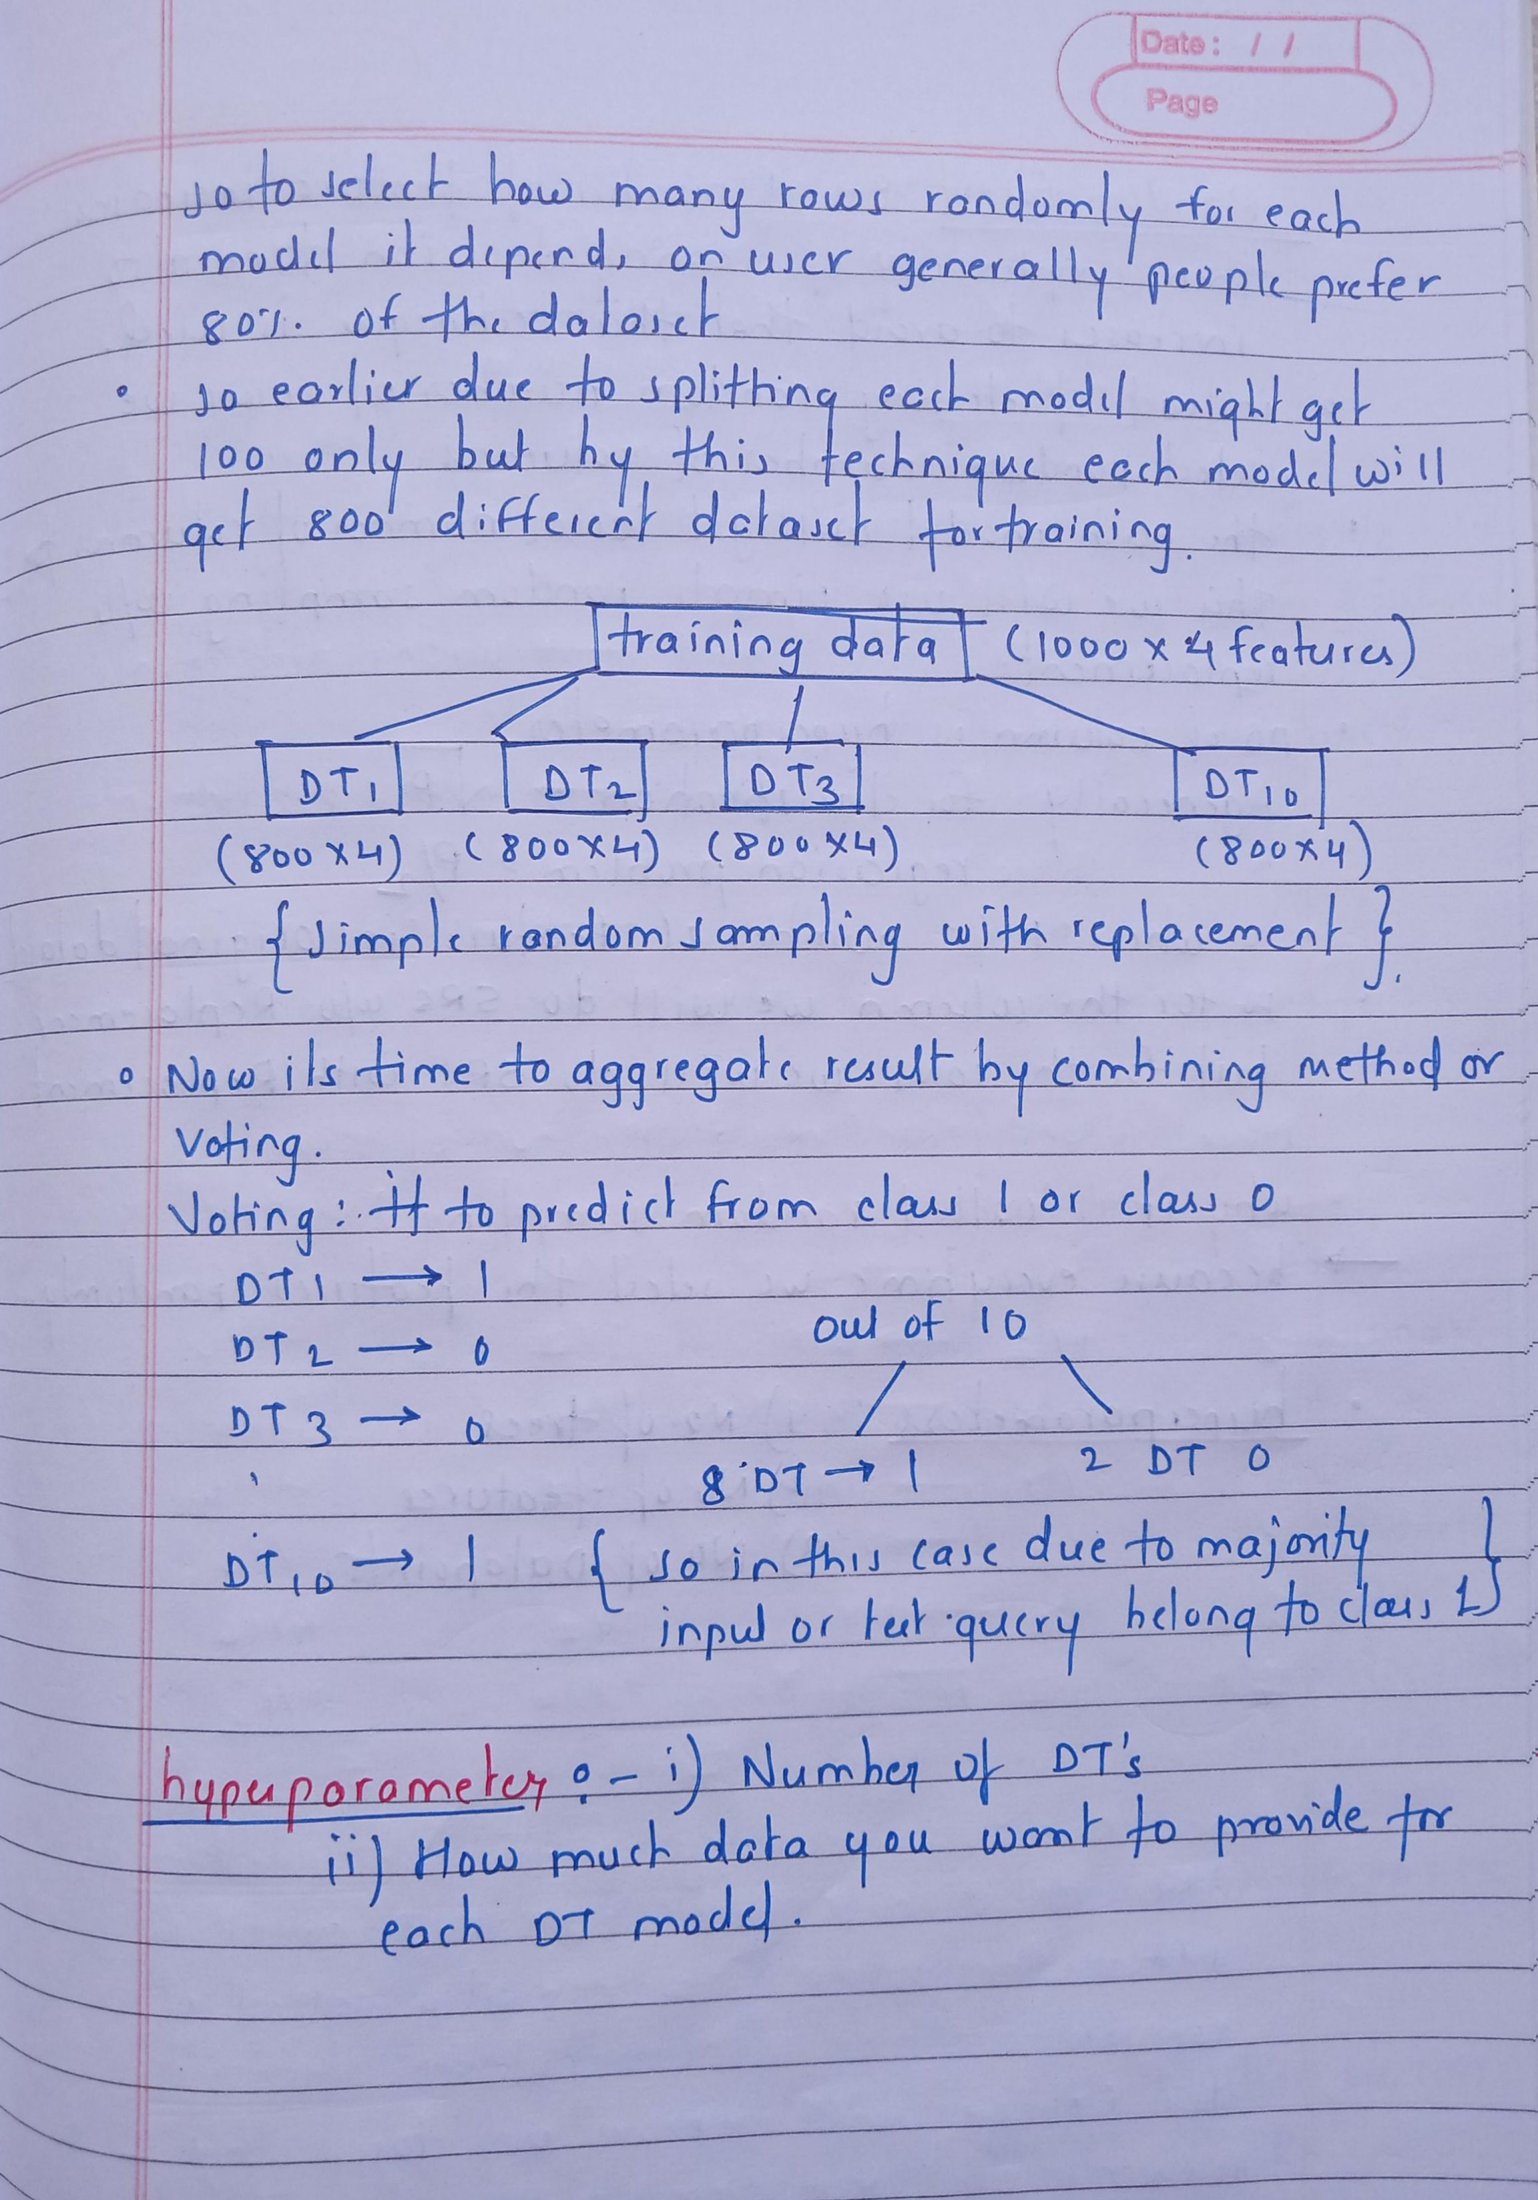 Date : / /
Page
so to select how many rows randomly for each
model it depends on user generally people prefer
80%. of the dataset
• so earlier due to splitting each model might get
100 only but by this technique each model will
get 800 different dataset for training.
training data (1000 x 4 features)
DT1 DT2 DT3 DT10
(800 x 4) (800 x 4) (800 x 4) (800 x 4)
{ simple random sampling with replacement }.
• Now its time to aggregate result by combining method or
Voting.
Voting : It to predict from class 1 or class 0
DT1 → 1
out of 10
DT2 → 0
DT3 → 0
8 DT → 1 2 DT 0
DT10 → 1 { so in this case due to majority
input or test query belong to class 1 }
hyperparameter :- i) Number of DT's
ii) How much data you want to provide for
each DT model.